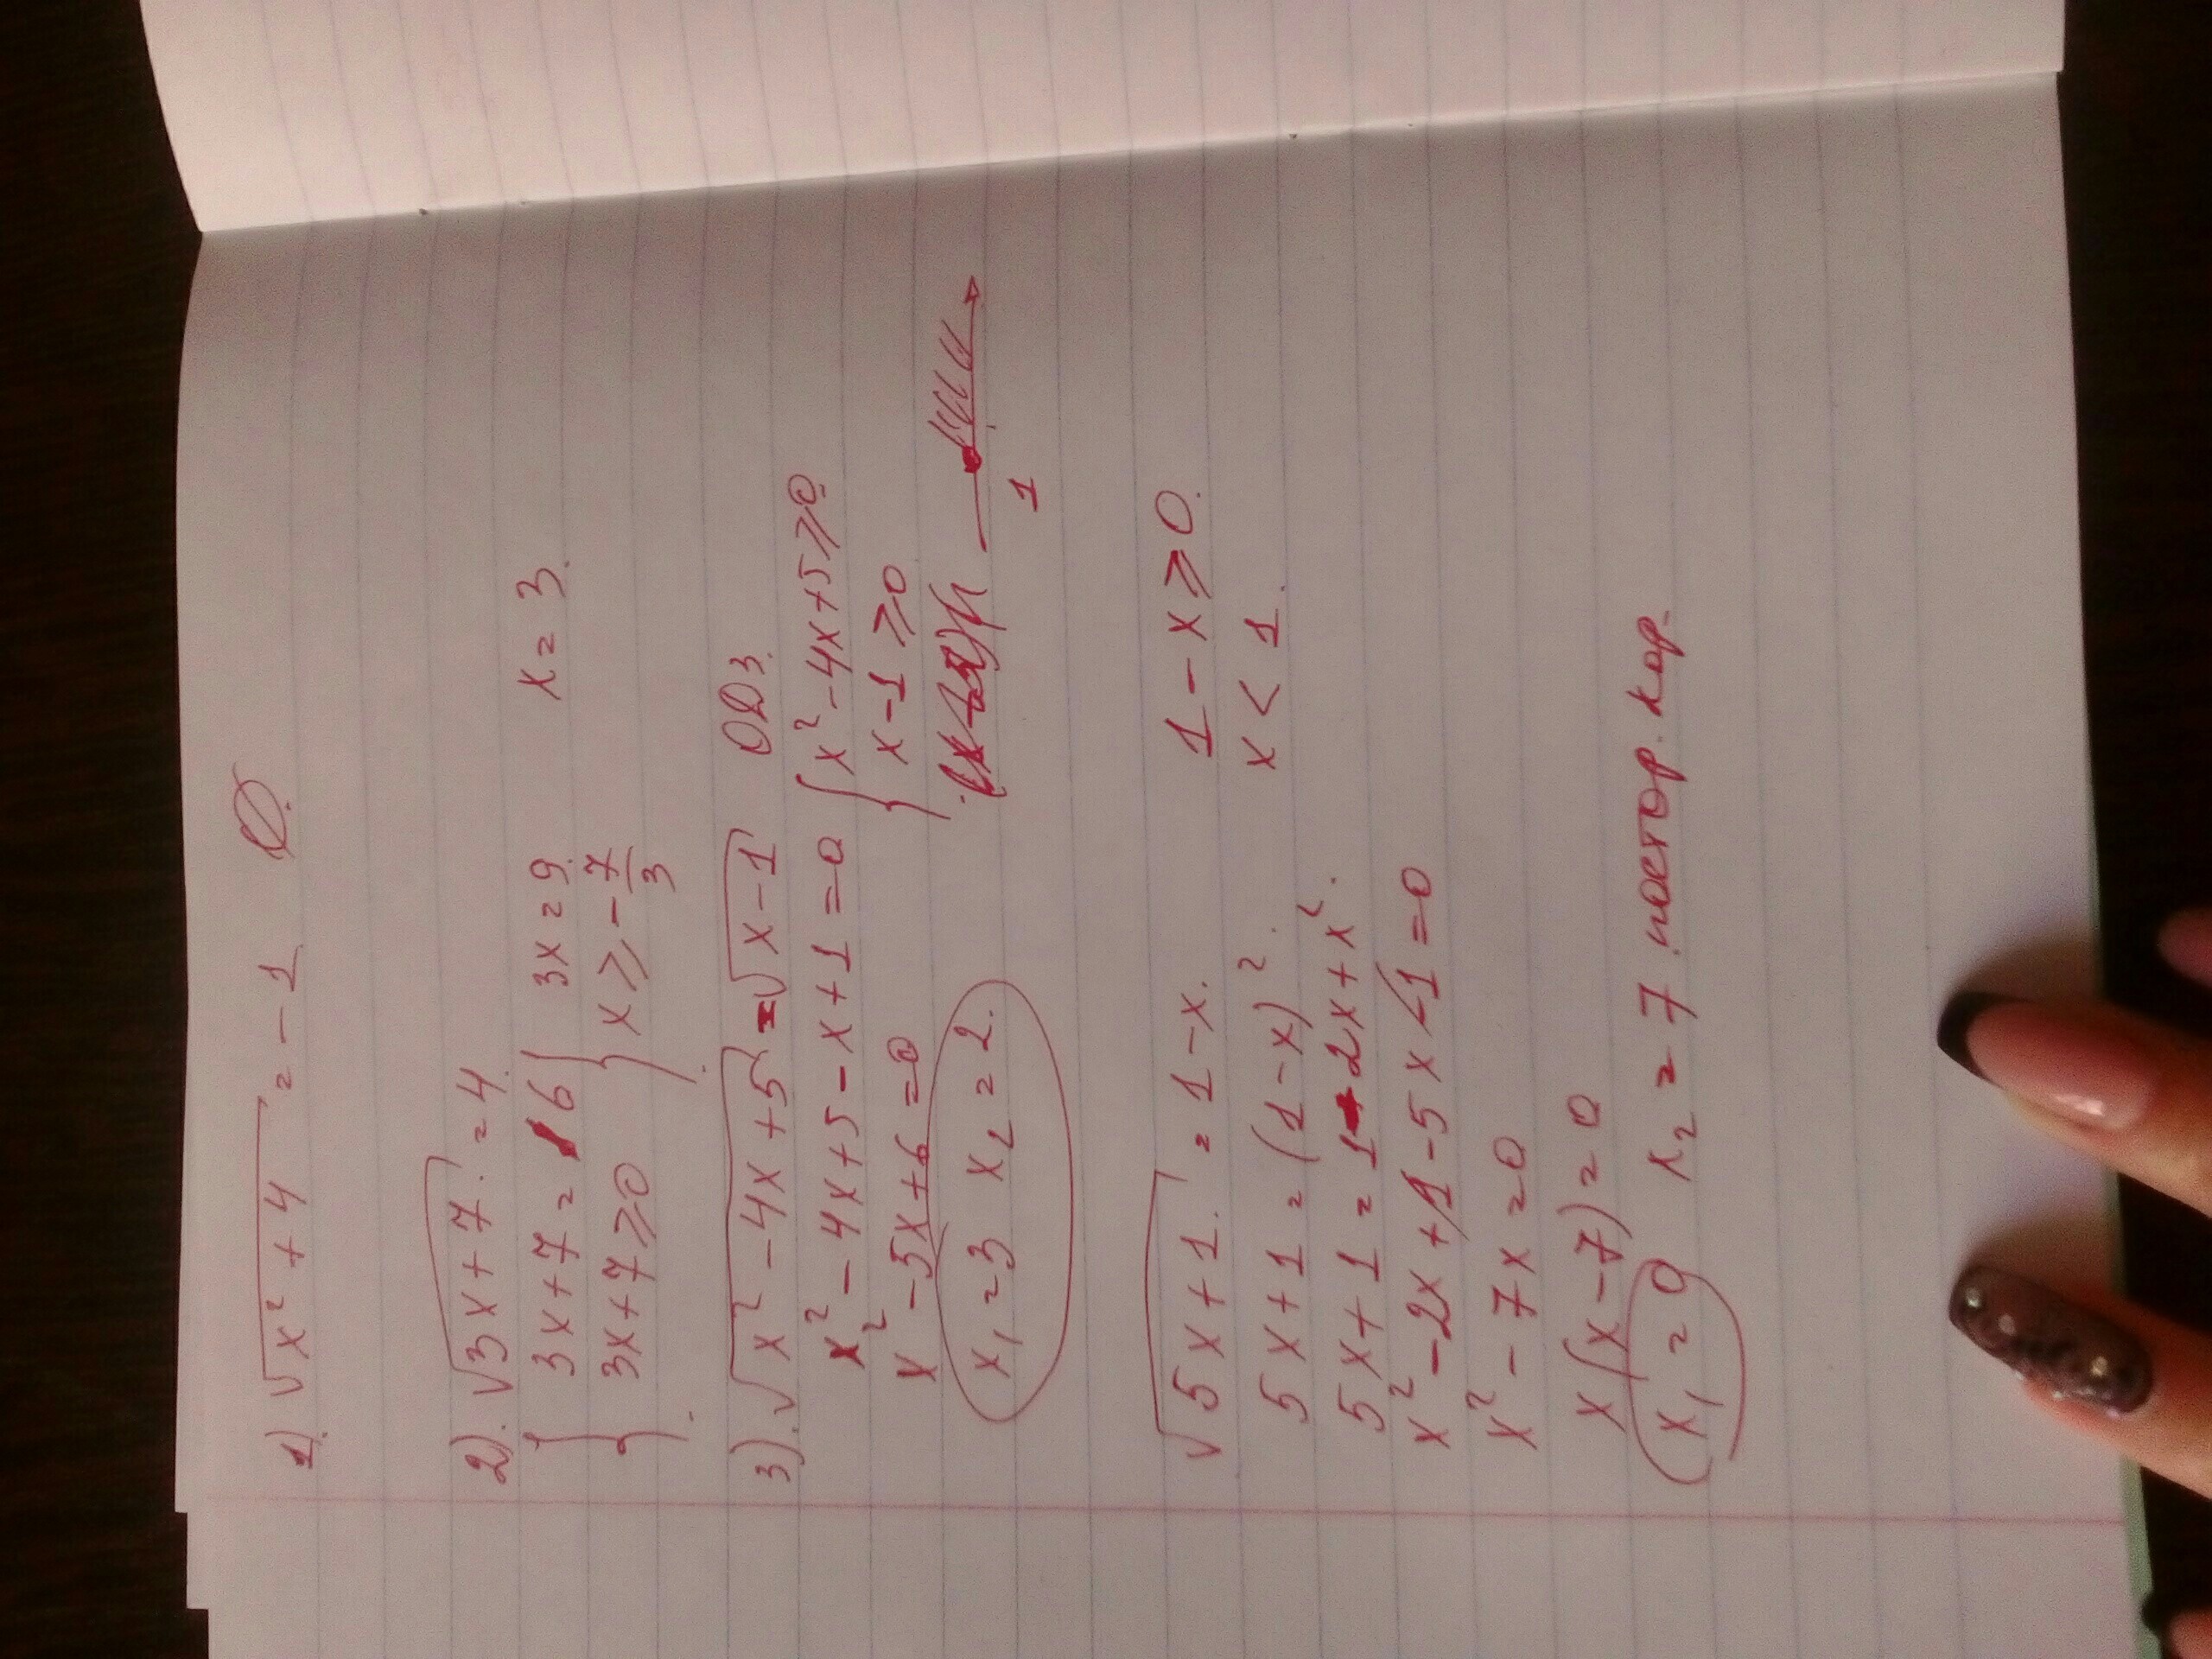 1) √x² + 4 = - 1 Ø.
2). √3x + 7. = 4.
{ 3x + 7 = 16 { 3x = 9. x = 3.
3x + 7 ≥ 0 x ≥ - 7/3
3). √x² - 4x + 5 = √x - 1 ОДЗ.
x² - 4x + 5 - x + 1 = 0 { x² - 4x + 5 ≥ 0
x² - 5x + 6 = 0 x - 1 ≥ 0
x₁ = 3 x₂ = 2. 1
√5x + 1. = 1 - x. 1 - x ≥ 0.
5x + 1 = (1 - x)². x < 1.
5x + 1 = 1 - 2x + x².
x² - 2x + 1 - 5x - 1 = 0
x² - 7x = 0
x(x - 7) = 0
x₁ = 0 x₂ = 7 постор. кор.